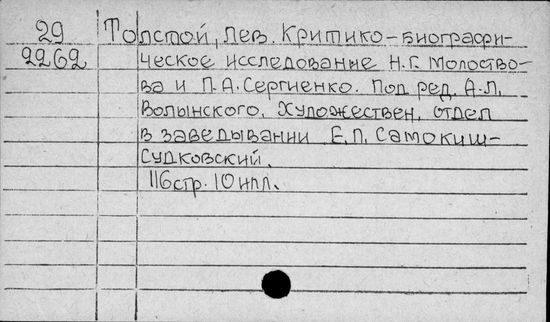 29 Толстой, Лев. Критико-биографи-
2262 ческое исследование Н.Г. Молоство-
ва и П.А. Сергиенко. Под ред. А.Л.
Волынского. Художествен. отдел
в заведывании Е.П. Самокиш-
Судковский.
116 стр. 10 илл.